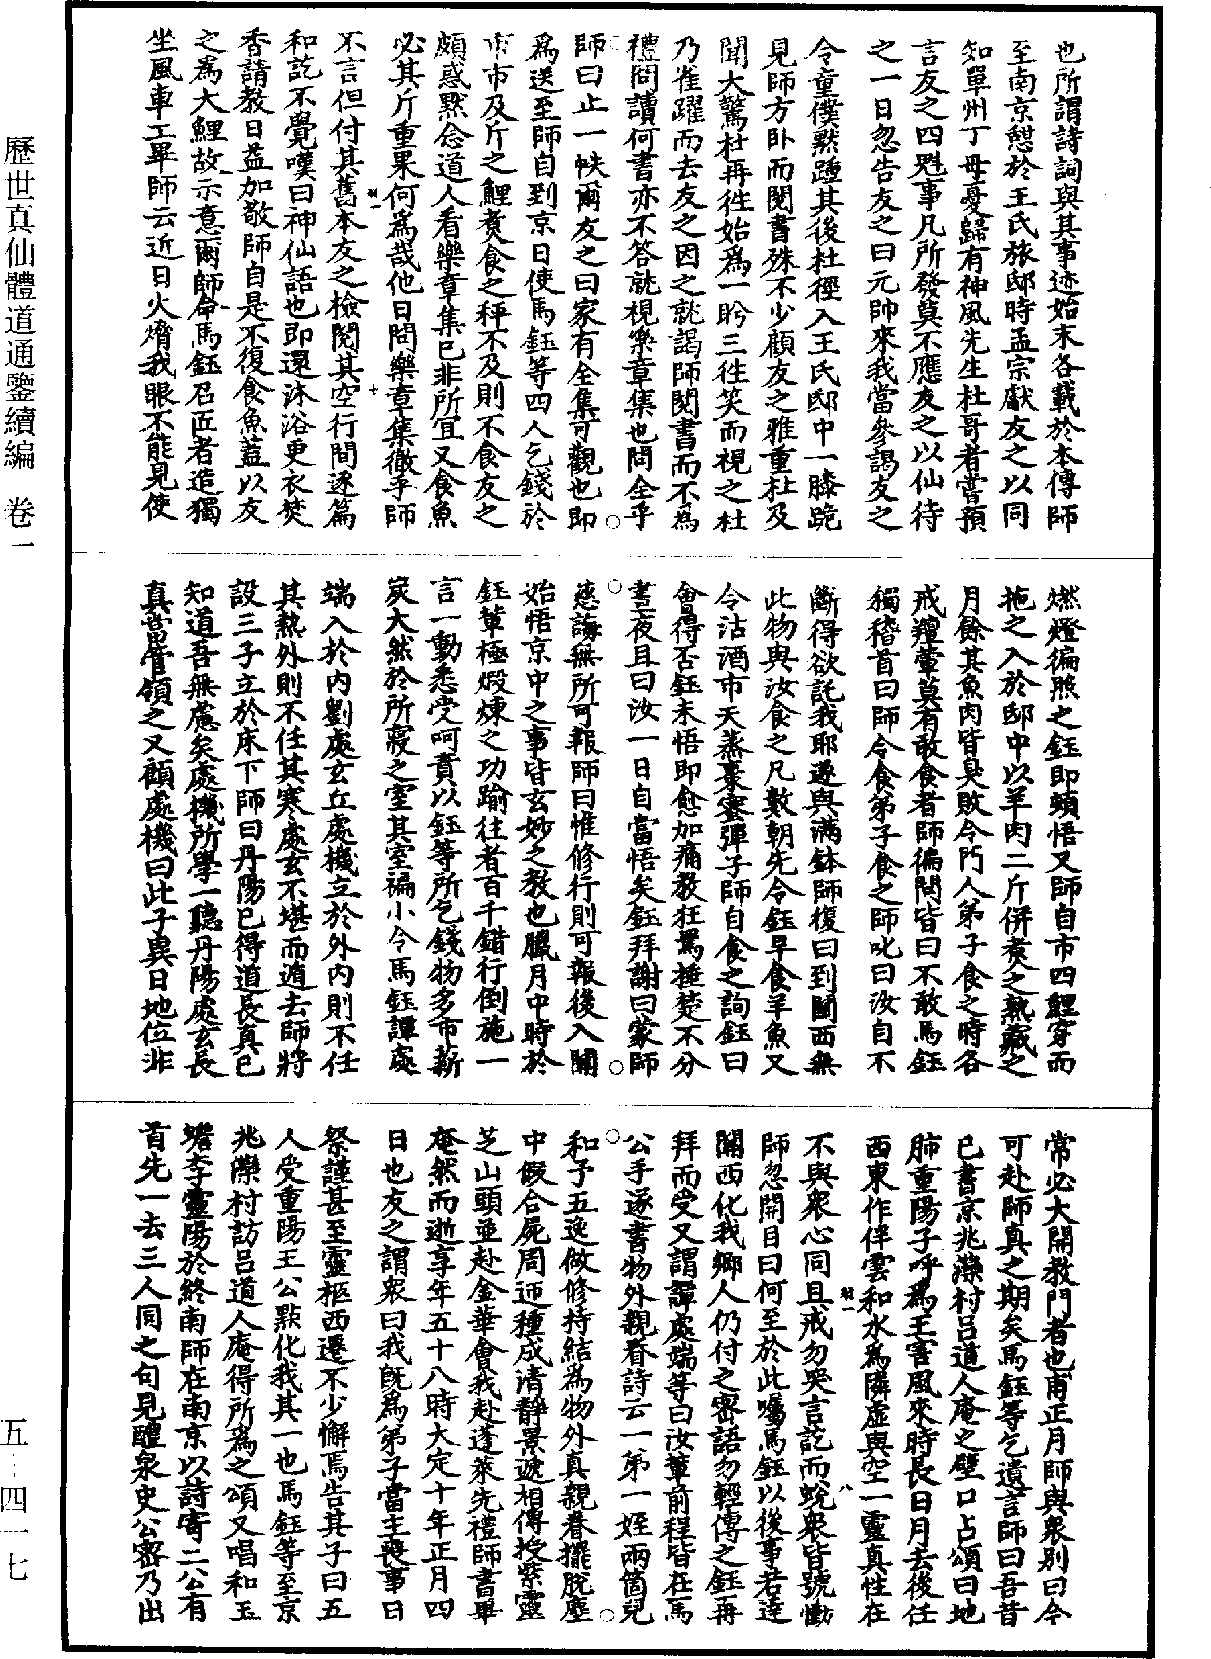 歷世真仙體道通鑒續編　卷一
五·四一七
也所謂詩詞與其事迹始末各載於本傳師
至南京憇於王氏旅邸時孟宗獻友之以同
知單州丁母憂歸有神風先生杜哥者嘗預
言友之四魁事凡所發莫不應友之以仙待
之一日忽告友之曰元帥來我當參謁友之
令童僕默踵其後杜徑入王氏邸中一膝跪
見師方卧而閱書殊不少顧友之雅重杜及
聞大驚杜再徃始爲一盻三徃笑而視之杜
乃雀躍而去友之因之就謁師閱書而不爲
禮問讀何書亦不答就視樂章集也問全乎
師曰止一帙爾友之曰家有全集可觀也即
爲送至師自到京日使馬鈺等四人乞錢於
市市及斤之鯉煑食之秤不及則不食友之
頗惑黙念道人看樂章集已非所宜又食魚
必其斤重果何爲哉他日問樂章集徹乎師
不言但付其舊本友之檢閱其空行間逐篇
和訖不覺嘆曰神仙語也即還沐浴更衣焚
香請教日益加敬師自是不復食魚蓋以友
之爲大鯉故示意爾師命馬鈺召匠者造獨
坐風車工畢師云近日火㷟我眼不能見使
燃燈徧照之鈺即頓悟又師自市四鯉穿而
拖之入於邸中以羊肉二斤併煑之熟藏之
月餘其魚肉皆臭敗令門人弟子食之時各
戒羶葷莫有敢食者師徧問皆曰不敢馬鈺
獨稽首曰師令食弟子食之師叱曰汝自不
斷得欲託我耶遂與滿鉢師復曰到關西無
此物與汝食之凡數朝先令鈺早食羊魚又
令沽酒市天蒸棗蜜彈子師自食之詢鈺曰
會得否鈺未悟即愈加痛教狂罵捶楚不分
晝夜且曰汝一日自當悟矣鈺拜謝曰蒙師
慈誨無所可報師曰惟修行則可報後入關
始悟京中之事皆玄妙之教也臘月中時於
鈺輩極煅煉之功踰往者百千錯行倒施一
言一動悉受呵責以鈺等所乞錢物多市薪
炭大然於所寢之室其室褊小令馬鈺譚處
端入於內劉處玄丘處機立於外內則不任
其熱外則不任其寒處玄不堪而遁去師將
設三子立於床下師曰丹陽已得道長真已
知道吾無慮矣處機所學一聽丹陽處玄長
真當管領之又顧處機曰此子異日地位非
常必大開教門者也甫正月師與衆別曰今
可赴師真之期矣馬鈺等乞遺言師曰吾昔
已書京兆灤村呂道人庵之壁口占頌曰地
肺重陽子呼爲王害風來時長日月去後任
西東作伴雲和水爲隣虛與空一靈真性在
不與衆心同且戒勿哭言訖而蛻衆皆號慟
師忽開目曰何至於此囑馬鈺以後事若達
關西化我鄉人仍付之密語勿輕傳之鈺再
拜而受又謂譚處端等曰汝輩前程皆在馬
公手遂書物外親眷詩云一弟一姪兩箇兒
和予五逸做修持結爲物外真親眷擺脫塵
中假合屍周迊種成清靜景遞相傳授紫靈
芝山頭並赴金華會我赴蓬萊先禮師書畢
奄然而逝享年五十八時大定十年正月四
日也友之謂衆曰我既爲弟子當主喪事日
祭謹甚至靈柩西遷不少懈焉告其子曰五
人受重陽王公點化我其一也馬鈺等至京
兆灤村訪呂道人庵得所爲之頌又唱和玉
蟾李靈陽於終南師在南京以詩寄二公有
首先一去三人同之句見醴泉史公密乃出